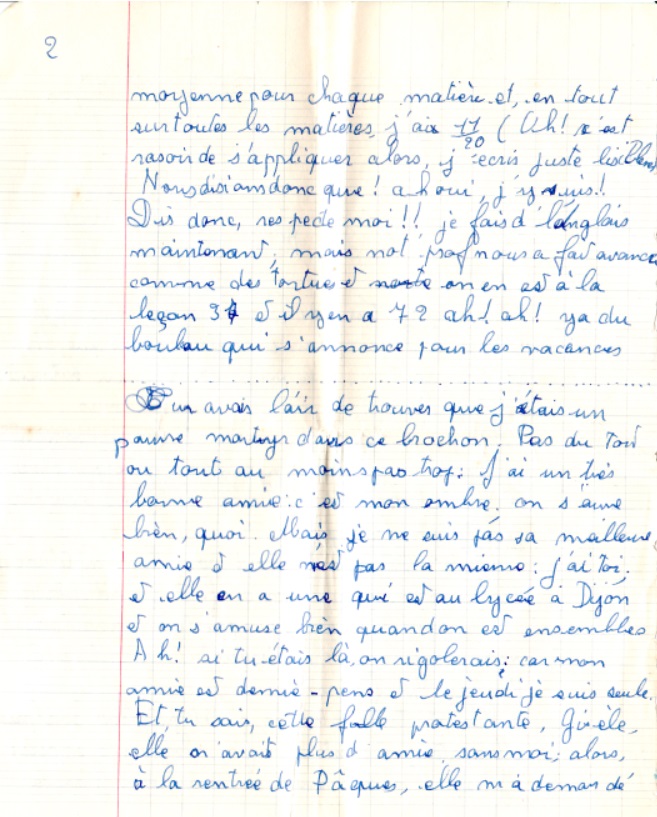 2
moyenne pour chaque matière et, en tout
sur toutes les matières, j'ai 11/20 (Ah! c'est
rasoir de s'appliquer alors, j'écris juste
Nous disions donc que! ah oui, j'y suis!!
Dis donc, respecte moi!! je fais d'l'anglais
maintenant, mais not' prof nous a fait avancer
comme des tortue et on en est à la
leçon 31 et il y en a 72 ah! ah! ya du
boulau qui s'annonce pour les vacances
Tu avais l'air de trouver que j'étais un
pauvre martyr dans ce brochon. Pas du tout
ou tout au moins pas trop: J'ai un très
bonne amie: c'est mon ombre. on s'aime
bien, quoi. Mais je ne suis pas sa meilleure
amie et elle n'est pas la mienne: j'ai toi,
et elle en a une qui est au lycée à Dijon
et on s'amuse bien quand on est ensembles
Ah! si tu étais là, on rigolerais; car mon
amie est demie-pens et le jeudi je suis seule.
Et, tu sais, cette folle protestante, Gisèle,
elle n'avait plus d'amie, sans moi; alors,
à la rentrée de Pâques, elle m'a demandé